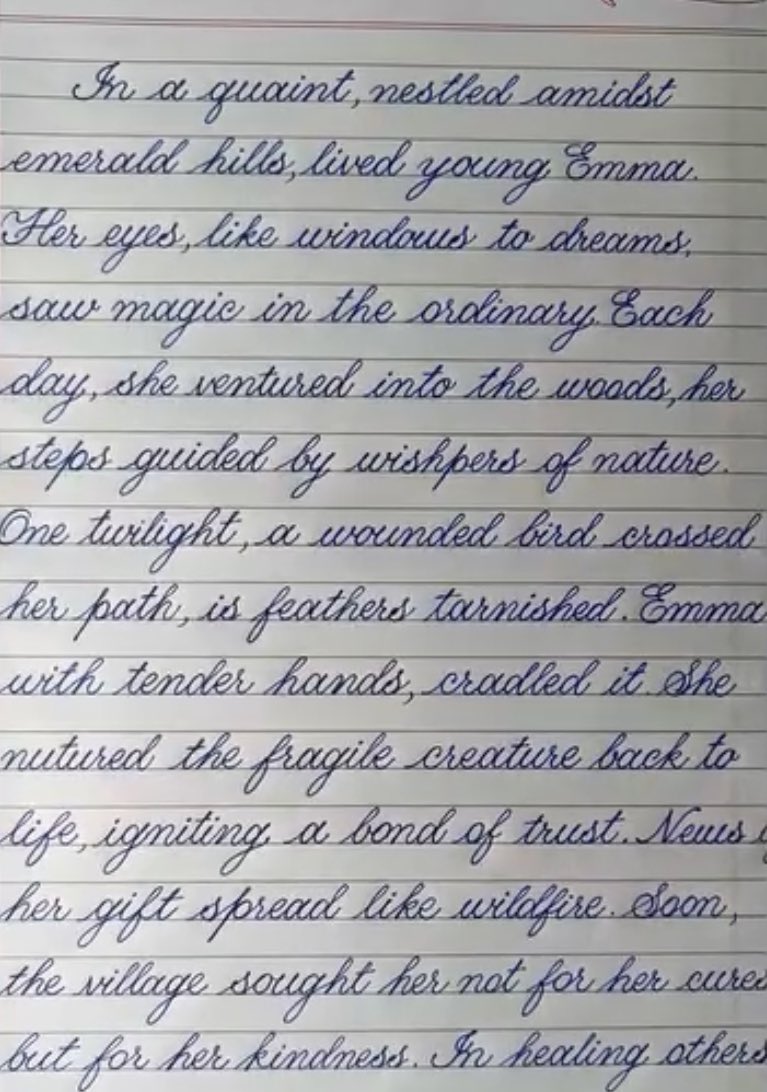 In a quaint, nestled amidst
emerald hills, lived young Emma.
Her eyes, like windows to dreams,
saw magic in the ordinary. Each
day, she ventured into the woods, her
steps guided by wishpers of nature.
One twilight, a wounded bird crossed
her path, is feathers tarnished. Emma
with tender hands, cradled it. She
nutured the fragile creature back to
life, igniting a bond of trust. News
her gift spread like wildfire. Soon,
the village sought her not for her cures
but for her kindness. In healing others